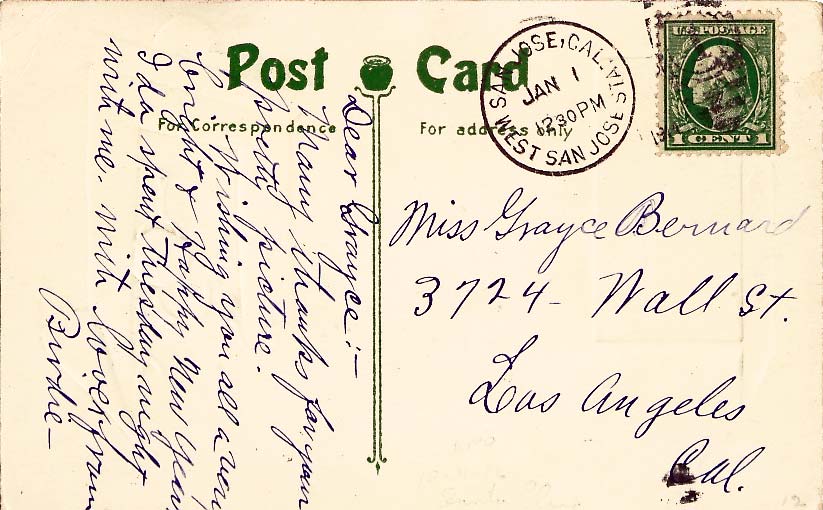 Post Card
For Correspondence
For address only
SAN JOSE, CAL. STA.
JAN 1
12 30 PM
WEST SAN JOSE
U.S. POSTAGE
1 CENT 1
Dear Grayce:-
Many thanks for your
pretty picture.
Wishing you all a very
bright & Happy New Year
I da spent Tuesday night
with me. With Love from
Birdie-
Miss Grayce Bernard
3724- Wall St.
Los Angeles
Cal.
12